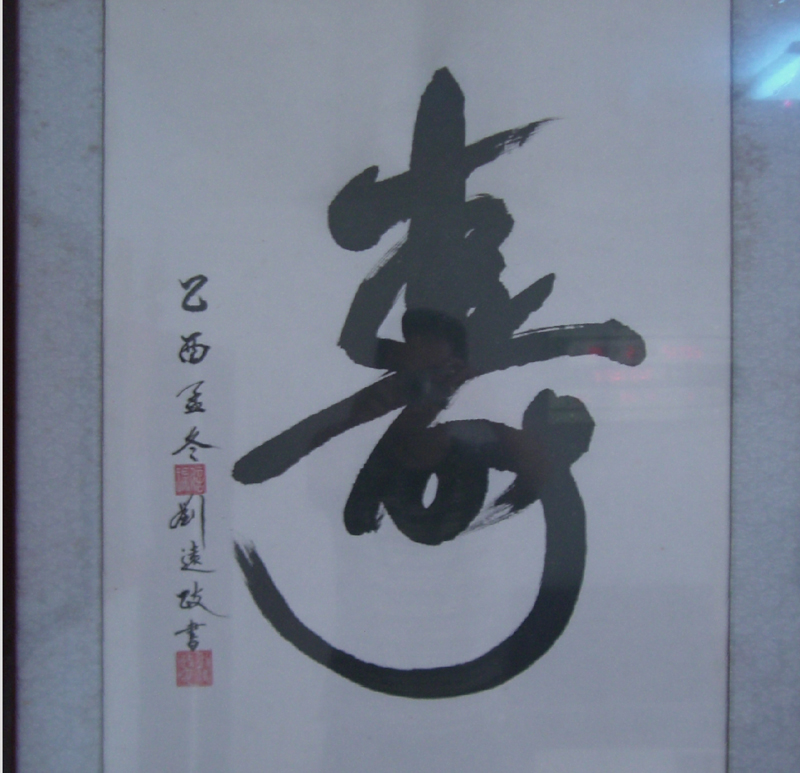 寿
乙酉孟冬
劉遠政書